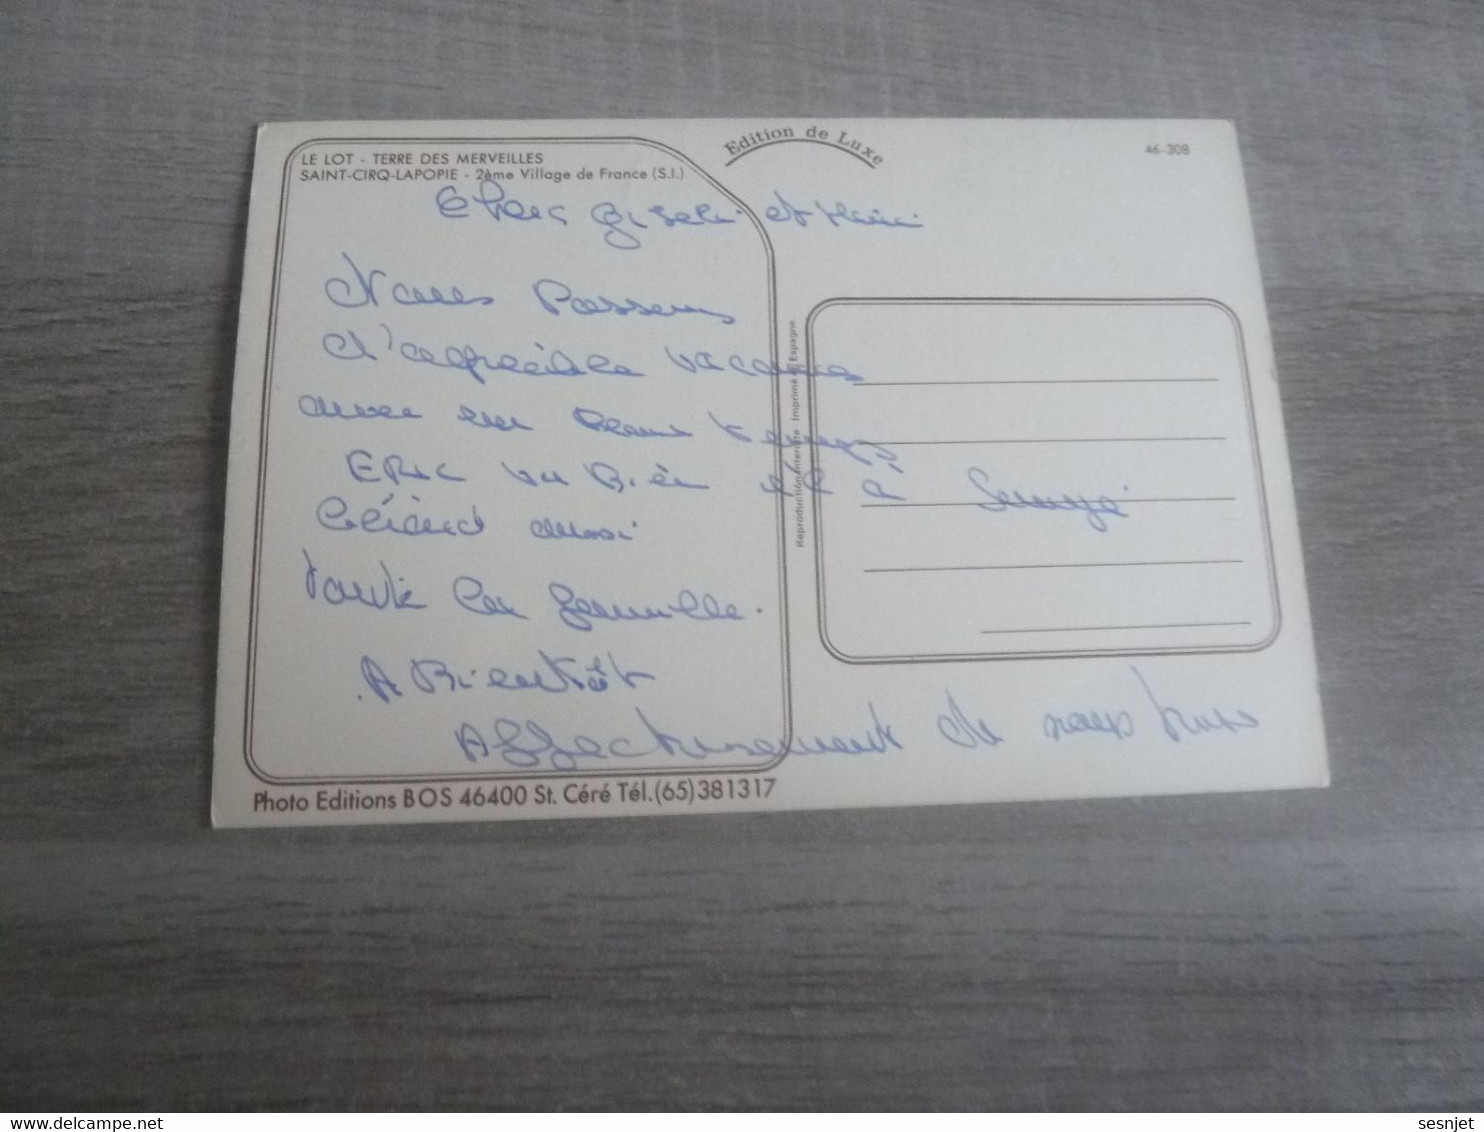 LE LOT - TERRE DES MERVEILLES
SAINT-CIRQ-LAPOPIE - 2ème Village de France (S.I.)
Edition de Luxe
46-308
Chers Gisele et
Nous Passons
d'agréable vacances
avec un beau temps
ERic va Bien et à
Gérard aussi
toute la famille.
A Bientôt
Affectueusement de nous tous
Reproduction interdite. Imprimé en Espagne.
Photo Editions BOS 46400 St. Céré Tél.(65)381317
sesnjet